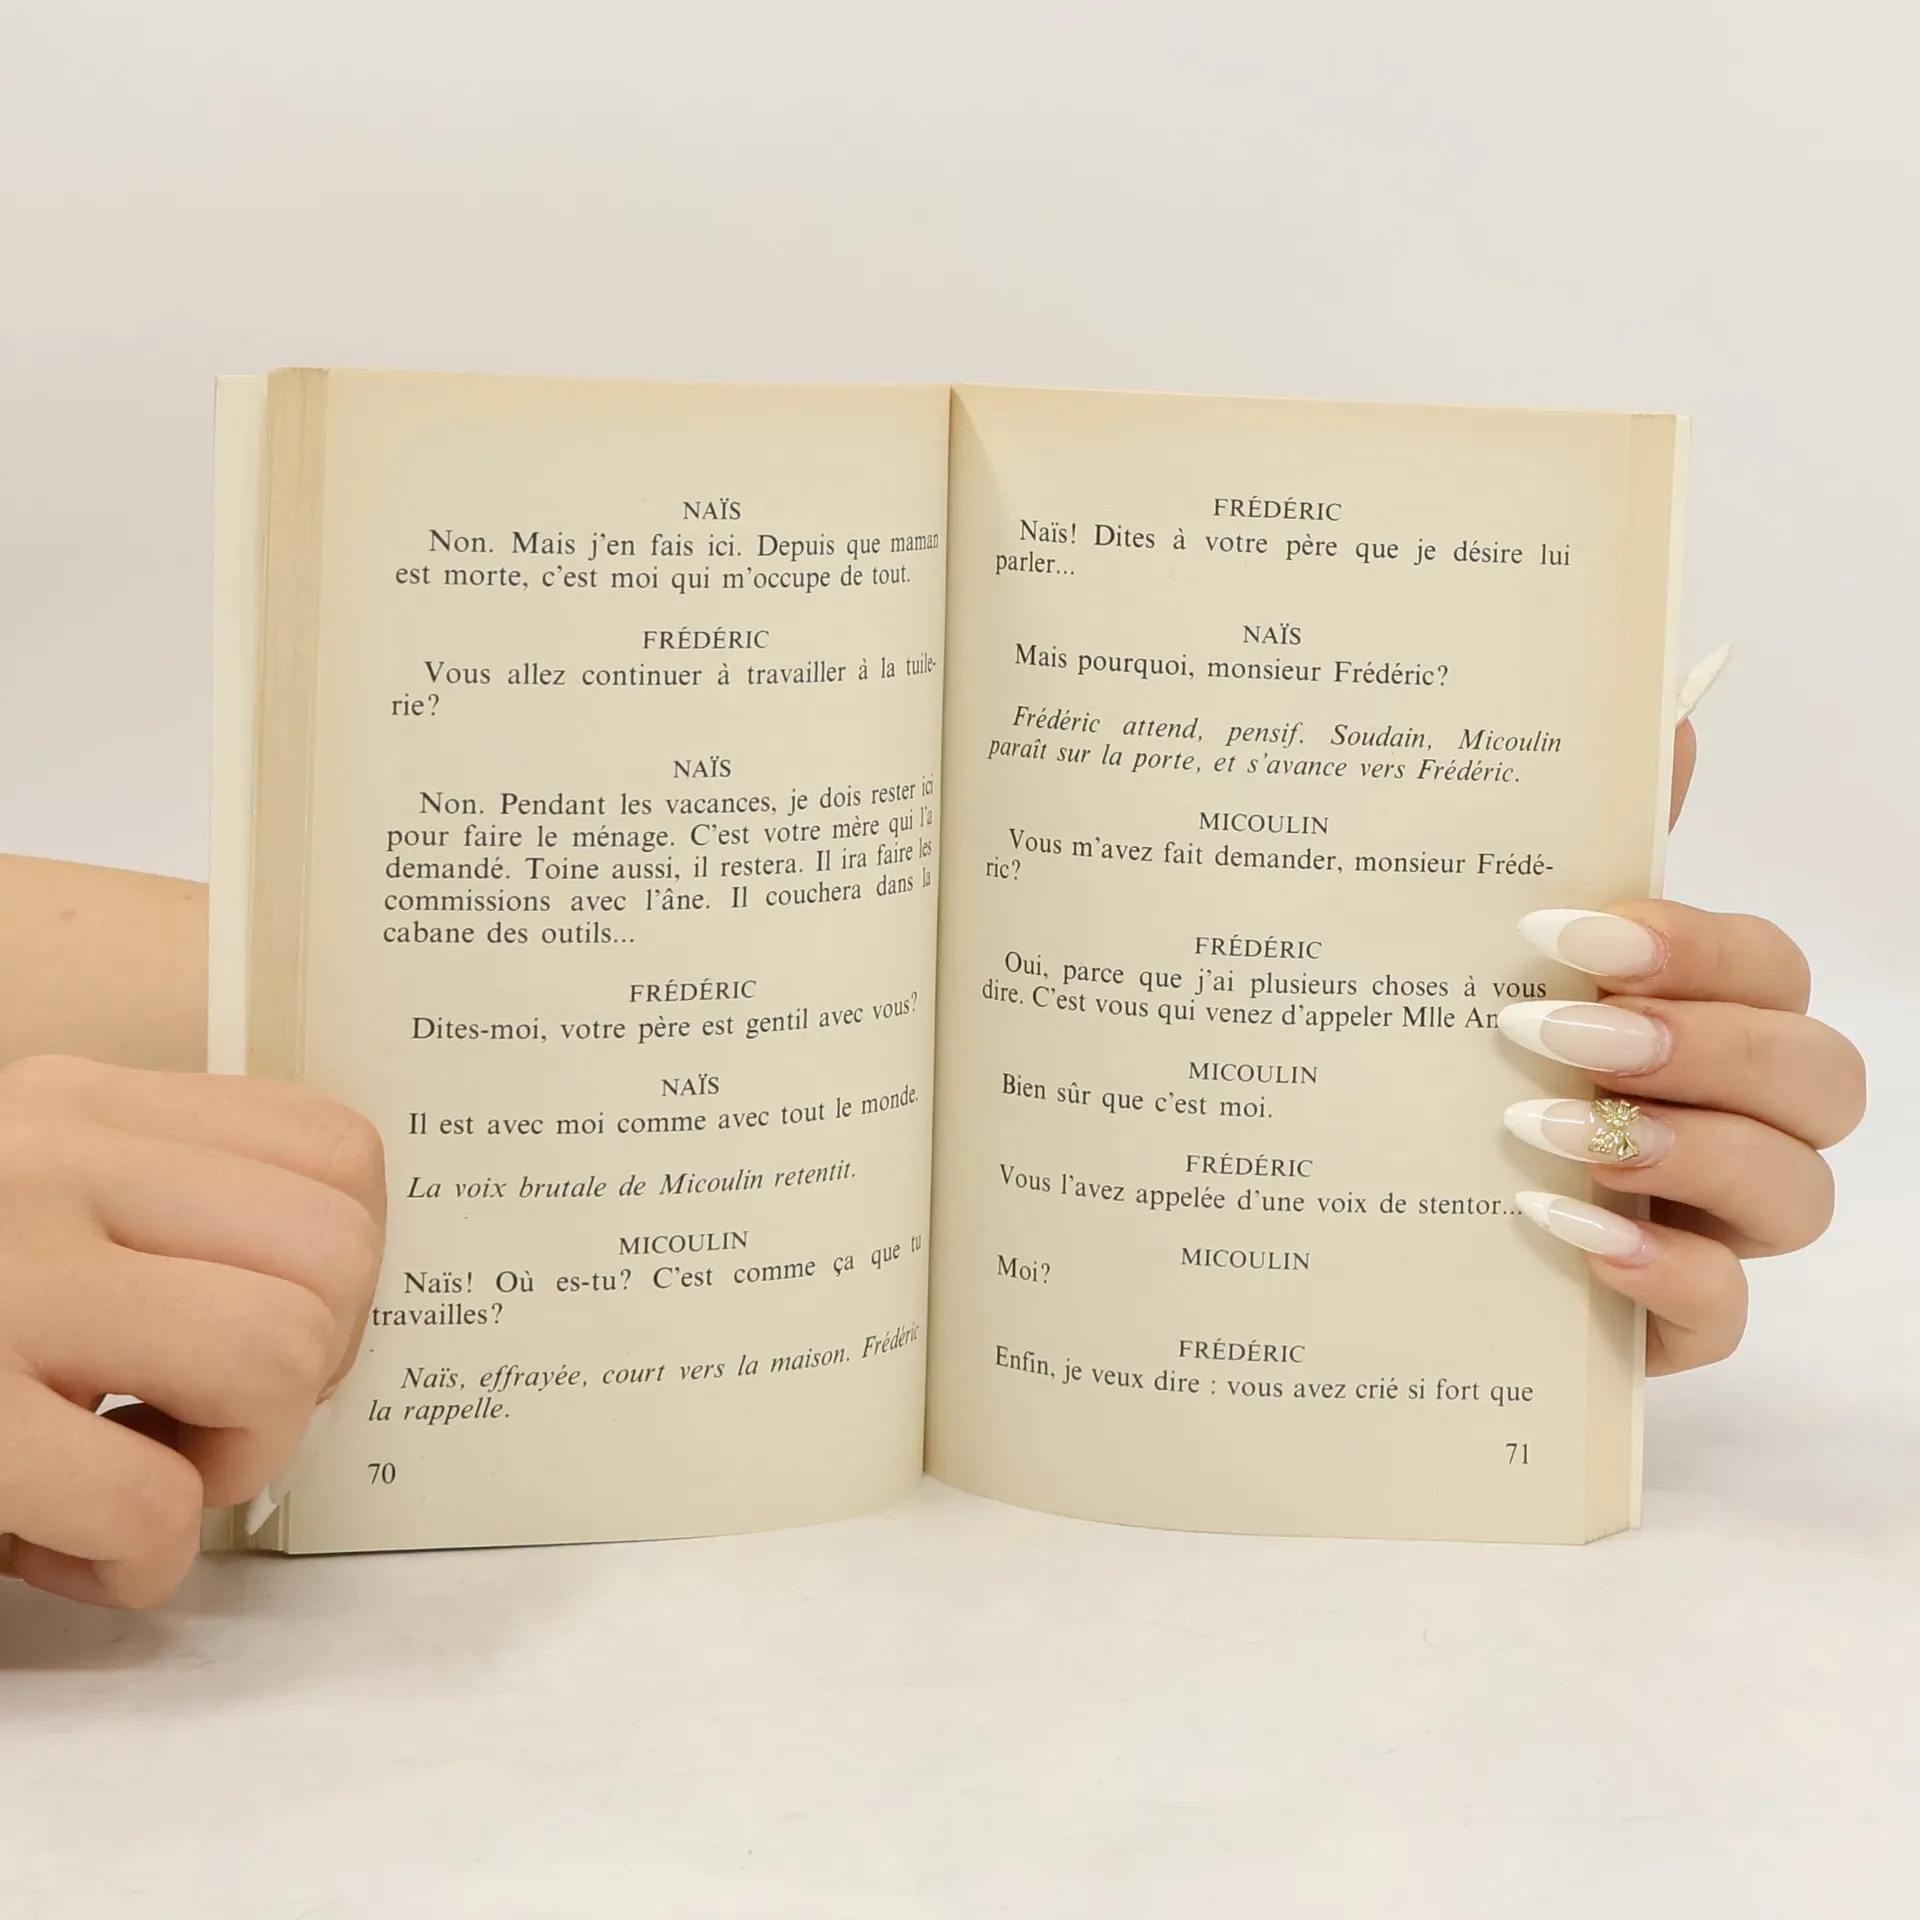 NAÏS
Non. Mais j'en fais ici. Depuis que maman
est morte, c'est moi qui m'occupe de tout.
FRÉDÉRIC
Vous allez continuer à travailler à la tuile-
rie?
NAÏS
Non. Pendant les vacances, je dois rester ici
pour faire le ménage. C'est votre mère qui l'a
demandé. Toine aussi, il restera. Il ira faire les
commissions avec l'âne. Il couchera dans la
cabane des outils...
FRÉDÉRIC
Dites-moi, votre père est gentil avec vous?
NAÏS
Il est avec moi comme avec tout le monde.
La voix brutale de Micoulin retentit.
MICOULIN
Naïs! Où es-tu? C'est comme ça que tu
travailles?
Naïs, effrayée, court vers la maison. Frédéric
la rappelle.
70
FRÉDÉRIC
Naïs! Dites à votre père que je désire lui
parler...
NAÏS
Mais pourquoi, monsieur Frédéric?
Frédéric attend, pensif. Soudain, Micoulin
paraît sur la porte, et s'avance vers Frédéric.
MICOULIN
Vous m'avez fait demander, monsieur Frédé-
ric?
FRÉDÉRIC
Oui, parce que j'ai plusieurs choses à vous
dire. C'est vous qui venez d'appeler Mlle
MICOULIN
Bien sûr que c'est moi.
FRÉDÉRIC
Vous l'avez appelée d'une voix de stentor...
MICOULIN
Moi?
FRÉDÉRIC
Enfin, je veux dire : vous avez crié si fort que
71